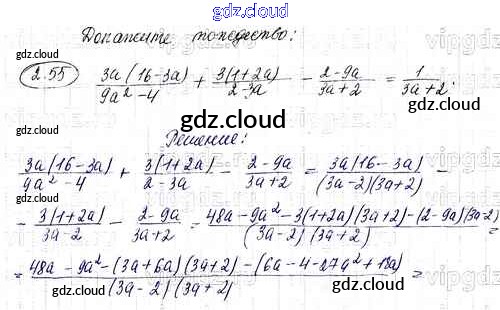 gdz.cloud
Докажите тождество:
2.55 3a(16-3a)/(9a²-4) + 3(1+2a)/(2-3a) - (2-9a)/(3a+2) = 1/(3a+2).
gdz.cloud
Решение:
3a(16-3a)/(9a²-4) + 3(1+2a)/(2-3a) - (2-9a)/(3a+2) = 3a(16-3a)/((3a-2)(3a+2)) -
- 3(1+2a)/(3a-2) - (2-9a)/(3a+2) = (48a-9a²-3(1+2a)(3a+2)-(2-9a)(3a-2))/((3a-2)(3a+2)) =
= (48a-9a²-(3a+6a)(3a+2)-(6a-4-27a²+18a))/((3a-2)(3a+2)) =
gdz.cloud